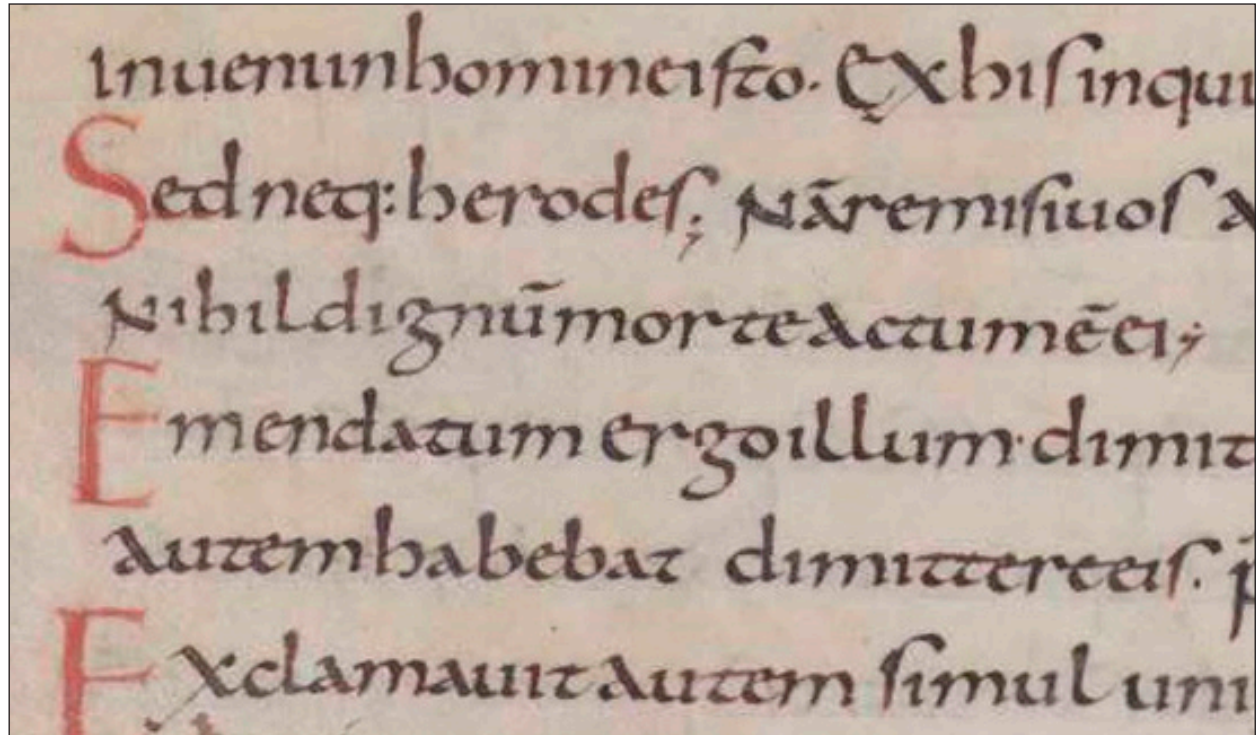 inueni in homine isto. Ex his inqui
Sed neq: herodes; Nā remisi uos a
Nihil dignū morte actum ē ei;
Emendatum ergo illum. dimit
autem habebat dimittere eis. p
Exclamauit autem simul uni